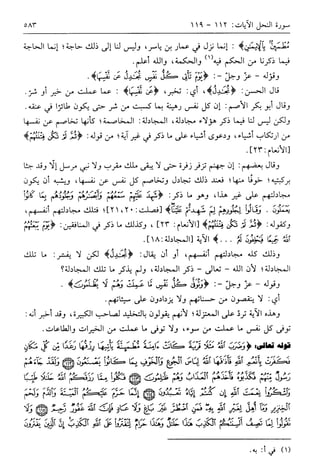 سورة النحل الآيات: ١١٢ - ١١٩ ٥٨٣
مُطْمَئِنٌّ بِالْإِيمَانِ﴾: إنما نزل في عمار بن ياسر، وليس لنا إلى ذلك حاجة؛ إنما الحاجة
فيما ذكرنا من الحكم فيه(١) والحكمة، والله أعلم.
وقوله - عز وجل -: ﴿يَوْمَ تَأْتِي كُلُّ نَفْسٍ تُجَادِلُ عَن نَّفْسِهَا﴾.
قال الحسن: ﴿تُجَادِلُ﴾، أي: تخبر، ﴿عَن نَّفْسِهَا﴾: عما عملت من خير أو شرّ.
وقال أبو بكر الأصم: إن كل نفس رهينة بما كسبت من شر حتى يكون طائرًا في عنقه.
ولكن ليس لنا فيما ذكر هؤلاء مجادلة، المجادلة: المخاصمة؛ كأنها تخاصم عن نفسها
من ارتكاب أشياء، ودعوى أشياء على ما ذكر في غير آية؛ من قوله: ﴿ثُمَّ لَمْ تَكُن فِتْنَتُهُمْ﴾
[الأنعام: ٢٣].
وقال بعضهم: إن جهنم تزفر زفرة حتى لا يبقى ملك مقرب ولا نبي مرسل إلّا وقد جثا
بركبتيه؛ خوفًا منها؛ فعند ذلك تجادل وتخاصم كل نفس عن نفسها، ويشبه أن يكون
مجادلتهم على غير هذا، وهو ما ذكر: ﴿شَهِدَ عَلَيْهِمْ سَمْعُهُمْ وَأَبْصَارُهُمْ وَجُلُودُهُم بِمَا كَانُوا
يَعْمَلُونَ . وَقَالُوا لِجُلُودِهِمْ لِمَ شَهِدتُّمْ عَلَيْنَا﴾ [فصلت: ٢٠، ٢١]؛ فتلك مجادلتهم أنفسهم،
وكقوله: ﴿ثُمَّ لَمْ تَكُن فِتْنَتُهُمْ﴾ [الأنعام: ٢٣]، وكذلك ما ذكر في المنافقين: ﴿يَوْمَ يَبْعَثُهُمُ
اللَّهُ جَمِيعًا فَيَحْلِفُونَ لَهُ ...﴾ الآية [المجادلة: ١٨].
وذلك كله مجادلتهم أنفسهم، أو أن يقال: ﴿تُجَادِلُ﴾ لكن لا يفسّر: ما تلك
المجادلة؛ لأن الله - تعالى - ذكر المجادلة، ولم يذكر ما تلك المجادلة؟
وقوله - عز وجل -: ﴿وَتُوَفَّى كُلُّ نَفْسٍ مَّا عَمِلَتْ وَهُمْ لَا يُظْلَمُونَ﴾.
أي: لا ينقصون من حسناتهم ولا يزدادون على سيئاتهم.
وهذه الآية تردّ على المعتزلة؛ لأنهم يقولون بالتخليد لصاحب الكبيرة، وقد أخبر أنه:
توفى كل نفس ما عملت من سوء، ولا توفى ما عملت من الخيرات والطاعات.
قوله تعالى: ﴿وَضَرَبَ اللَّهُ مَثَلًا قَرْيَةً كَانَتْ آمِنَةً مُّطْمَئِنَّةً يَأْتِيهَا رِزْقُهَا رَغَدًا مِّن كُلِّ مَكَانٍ
فَكَفَرَتْ بِأَنْعُمِ اللَّهِ فَأَذَاقَهَا اللَّهُ لِبَاسَ الْجُوعِ وَالْخَوْفِ بِمَا كَانُوا يَصْنَعُونَ ﴿١١٢﴾ وَلَقَدْ جَاءَهُمْ
رَسُولٌ مِّنْهُمْ فَكَذَّبُوهُ فَأَخَذَهُمُ الْعَذَابُ وَهُمْ ظَالِمُونَ ﴿١١٣﴾ فَكُلُوا مِمَّا رَزَقَكُمُ اللَّهُ حَلَالًا طَيِّبًا
وَاشْكُرُوا نِعْمَتَ اللَّهِ إِن كُنتُمْ إِيَّاهُ تَعْبُدُونَ ﴿١١٤﴾ إِنَّمَا حَرَّمَ عَلَيْكُمُ الْمَيْتَةَ وَالدَّمَ وَلَحْمَ
الْخِنزِيرِ وَمَا أُهِلَّ لِغَيْرِ اللَّهِ بِهِ فَمَنِ اضْطُرَّ غَيْرَ بَاغٍ وَلَا عَادٍ فَإِنَّ اللَّهَ غَفُورٌ رَّحِيمٌ ﴿١١٥﴾ وَلَا
تَقُولُوا لِمَا تَصِفُ أَلْسِنَتُكُمُ الْكَذِبَ هَذَا حَلَالٌ وَهَذَا حَرَامٌ لِّتَفْتَرُوا عَلَى اللَّهِ الْكَذِبَ إِنَّ الَّذِينَ يَفْتَرُونَ
(١) في أ: به.